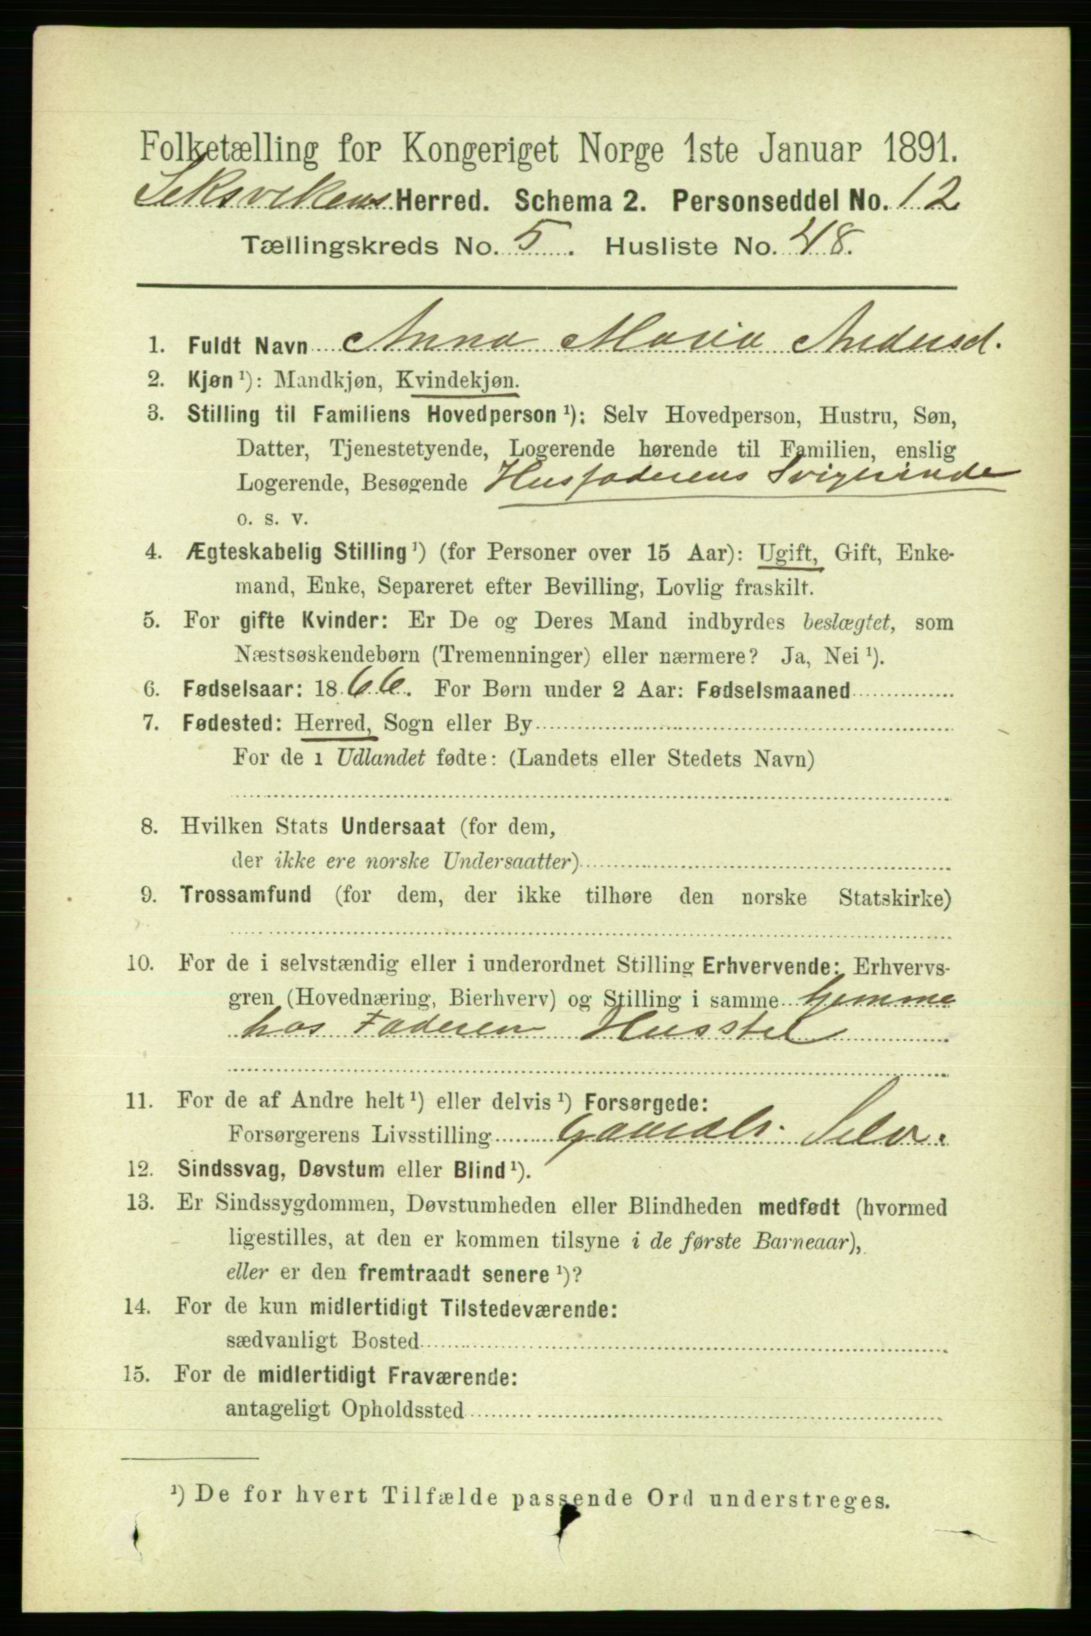 Folketælling for Kongeriget Norge 1ste Januar 1891.
Leksvikens Herred. Schema 2. Personseddel No. 12
Tællingskreds No. 5. Husliste No. 48.
1. Fuldt Navn Anna Maria Andersd.
2. Kjøn ¹): Mandkjøn, Kvindekjøn.
3. Stilling til Familiens Hovedperson ¹): Selv Hovedperson, Hustru, Søn,
Datter, Tjenestetyende, Logerende hørende til Familien, enslig
Logerende, Besøgende Husfaderens Svigerinde
o. s. v.
4. Ægteskabelig Stilling ¹) (for Personer over 15 Aar): Ugift, Gift, Enke-
mand, Enke, Separeret efter Bevilling, Lovlig fraskilt.
5. For gifte Kvinder: Er De og Deres Mand indbyrdes beslægtet, som
Næstsøskendebørn (Tremenninger) eller nærmere? Ja, Nei ¹).
6. Fødselsaar: 1866. For Børn under 2 Aar: Fødselsmaaned
7. Fødested: Herred, Sogn eller By
For de i Udlandet fødte: (Landets eller Stedets Navn)
8. Hvilken Stats Undersaat (for dem,
der ikke ere norske Undersaatter)
9. Trossamfund (for dem, der ikke tilhøre den norske Statskirke)
10. For de i selvstændig eller i underordnet Stilling Erhvervende: Erhvervs-
gren (Hovednæring, Bierhverv) og Stilling i samme hjemme
hos Faderen Husstel
11. For de af Andre helt ¹) eller delvis ¹) Forsørgede:
Forsørgerens Livsstilling Gaardb. Selv.
12. Sindssvag, Døvstum eller Blind ¹).
13. Er Sindssygdommen, Døvstumheden eller Blindheden medfødt (hvormed
ligestilles, at den er kommen tilsyne i de første Barneaar),
eller er den fremtraadt senere ¹)?
14. For de kun midlertidigt Tilstedeværende:
sædvanligt Bosted
15. For de midlertidigt Fraværende:
antageligt Opholdssted
¹) De for hvert Tilfælde passende Ord understreges.